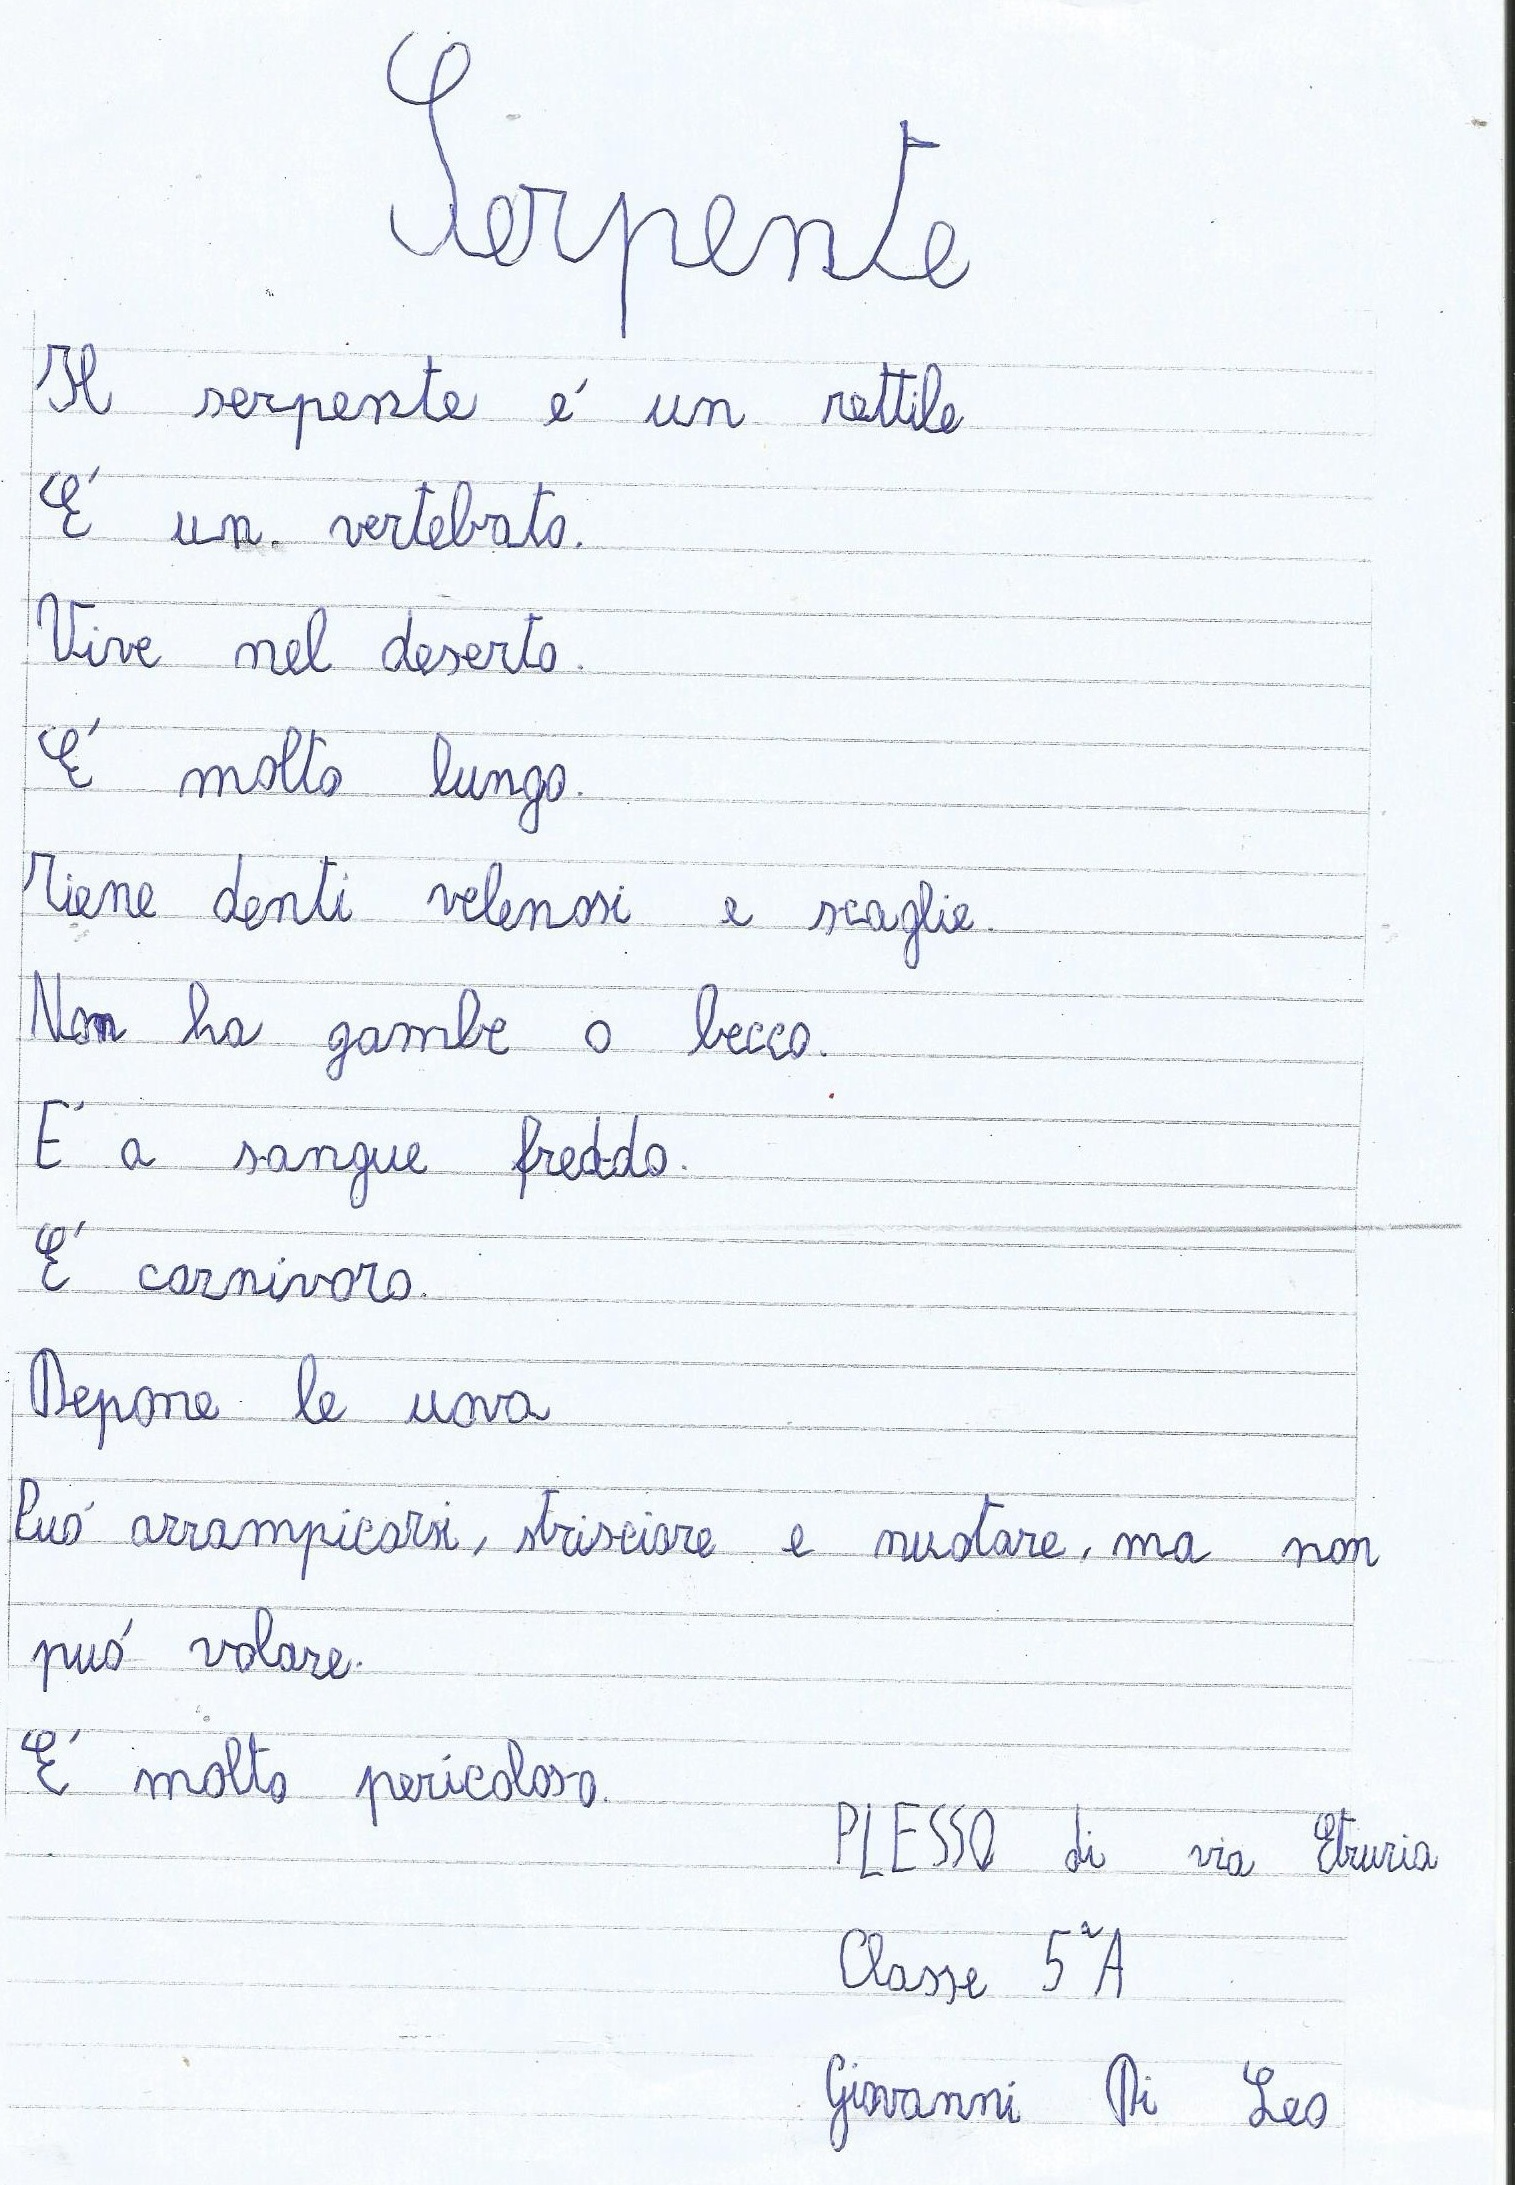 Serpente
Il serpente é un rettile
É un. vertebrato.
Vive nel deserto.
É molto lungo.
Tiene denti velenosi e scaglie.
Non ha gambe o becco.
É a sangue freddo.
É carnivoro.
Depone le uova
Puó arrampicarsi, strisciare e nuotare, ma non
puó volare.
É molto pericoloso.
PLESSO di via Etruria
Classe 5ªA
Giovanni Di Leo